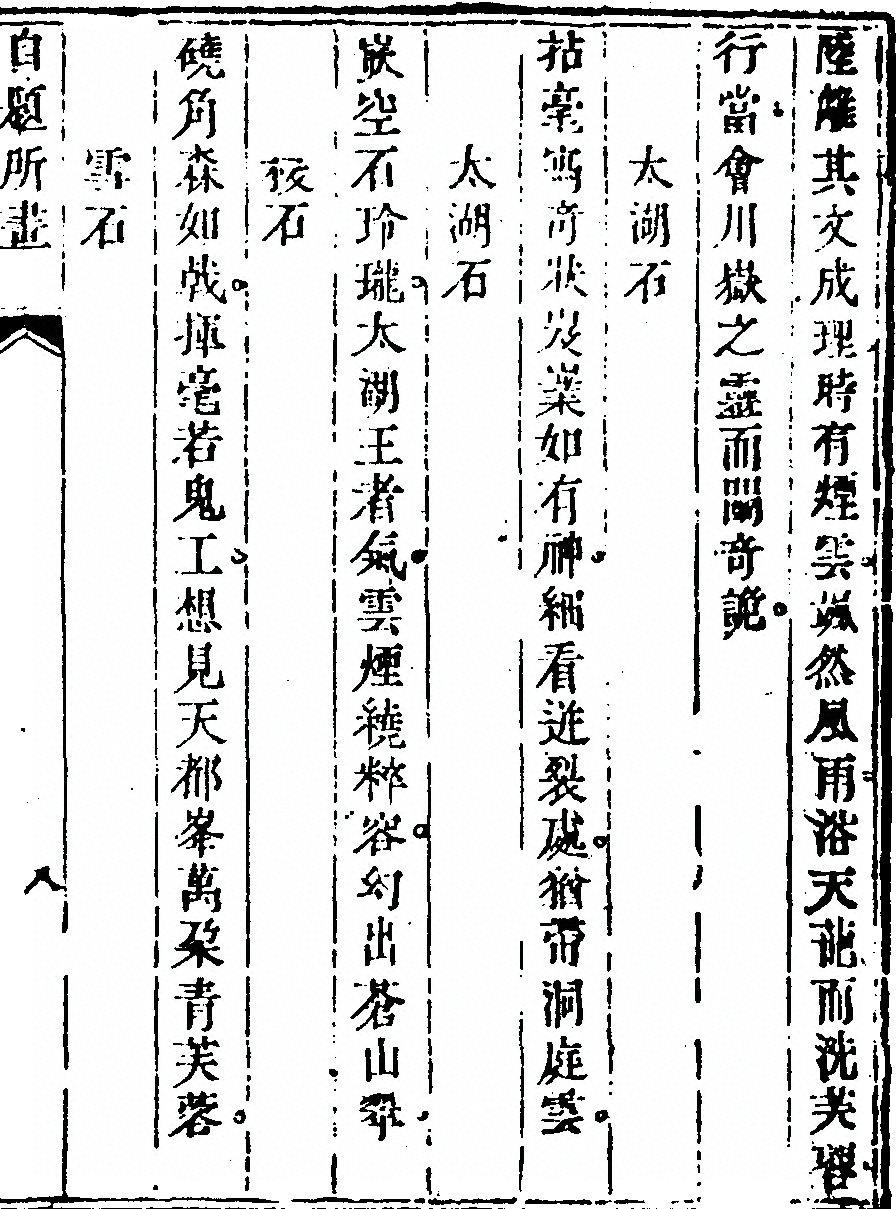 陸離其文成理時有煙雲颯然風雨浴天龍而洗芙蓉
行當會川嶽之靈而鬬奇詭
太湖石
拈毫寫奇狀岌嶪如有神細看迸裂處猶帶洞庭雲
太湖石
嵌空石玲瓏太湖王者氣雲煙繞粹容幻出蒼山翠
英石
磽角森如戟揮毫若鬼工想見天都峯萬朶青芙蓉
雪石
自題所畫
八